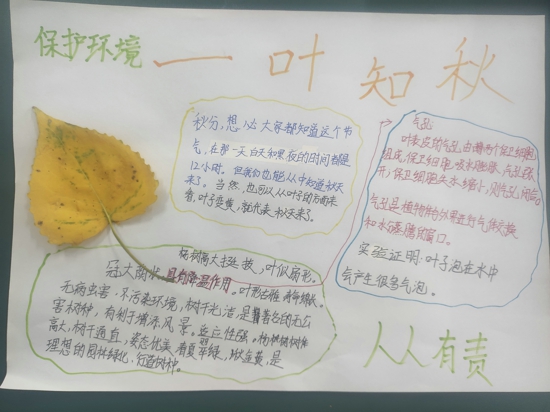 保护环境
一叶知秋
秋分，想必大家都知道这个节
气，在那一天白天和黑夜的时间都是
12小时。但我们也能从中知道秋天
来了。当然，也可以从叶子的方面来
看，叶子变黄，就代表秋天来了。
气孔
叶表皮的气孔，由两个保卫细胞
组成，保卫细胞吸水膨胀，气孔张
开，保卫细胞失水缩小，则气孔闭合。
气孔是植物体与外界进行气体交换
和水分蒸腾的窗口。
实验证明：叶子泡在水中
气产生很多气泡。
杨树高大壮，叶似扇形。
冠大荫浓，具有降温作用。叶形古雅
无病虫害，不污染环境，树干光洁，是著名的无公
害树种，有利于增添风景。适应性强。
高大，树干通直，姿态优美，春夏翠绿，秋金黄，是
理想的园林绿化、行道树种。
人人有责